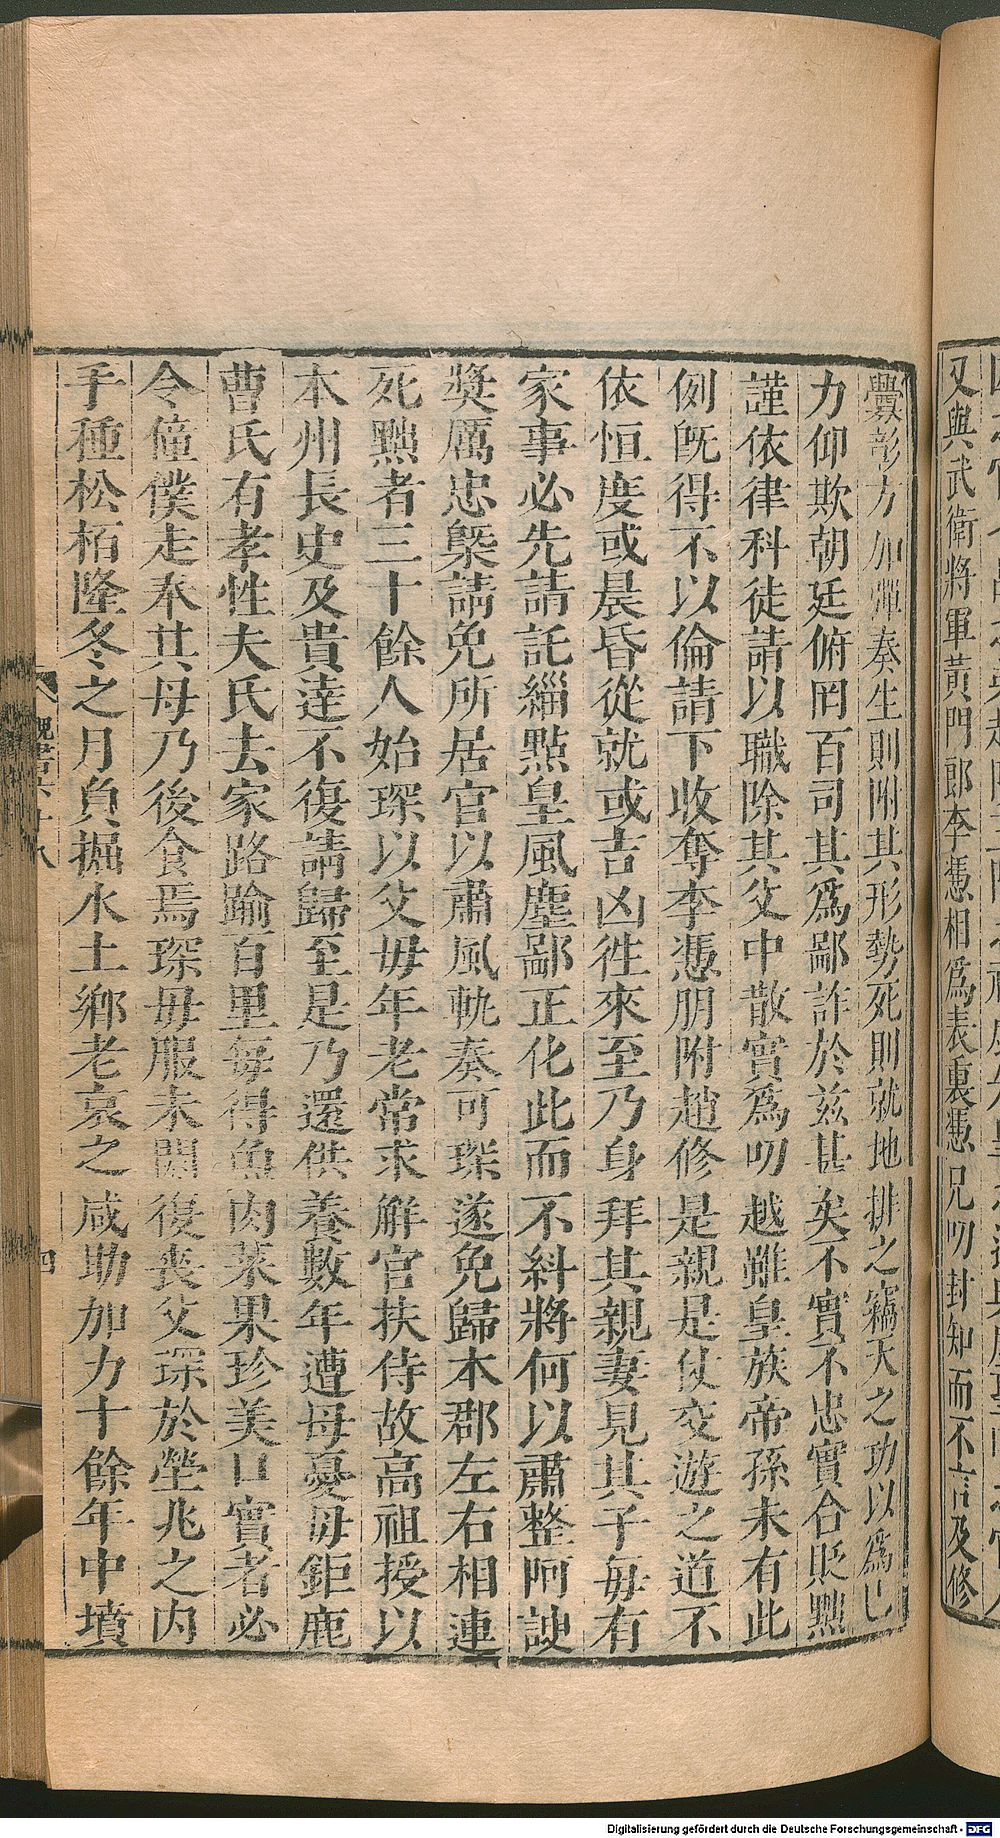 又與武衛將軍黃門郎李憑相爲表裏憑兄叨封知而不言及修
釁彰方加彈奏生則附其形勢死則就地排之竊天之功以爲己
力仰欺朝廷俯罔百司其爲鄙詐於兹甚矣不實不忠實合貶黜
謹依律科徒請以職除其父中散實爲叨越雖皇族帝孫未有此
例旣得不以倫請下收奪李憑朋附趙修是親是仗交遊之道不
依恒度或晨昏從就或吉凶徃來至乃身拜其親妻見其子毎有
家事必先請託緇點皇風塵鄙正化此而不糾將何以肅整阿諛
獎厲忠槩請免所居官以肅風軌奏可琛遂免歸本郡左右相連
死黜者三十餘人始琛以父毋年老常求解官扶侍故高祖授以
本州長史及貴達不復請歸至是乃還供養數年遭母憂毋鉅鹿
曹氏有孝性夫氏去家路踰百里每得魚肉菜果珍美口實者必
令僮僕走奉其母乃後食焉琛毋服未闋復喪父琛於塋兆之内
手種松栢隆冬之月負掘水土鄉老哀之咸助加力十餘年中墳
魏書六十八
四
Digitalisierung gefördert durch die Deutsche Forschungsgemeinschaft - DFG